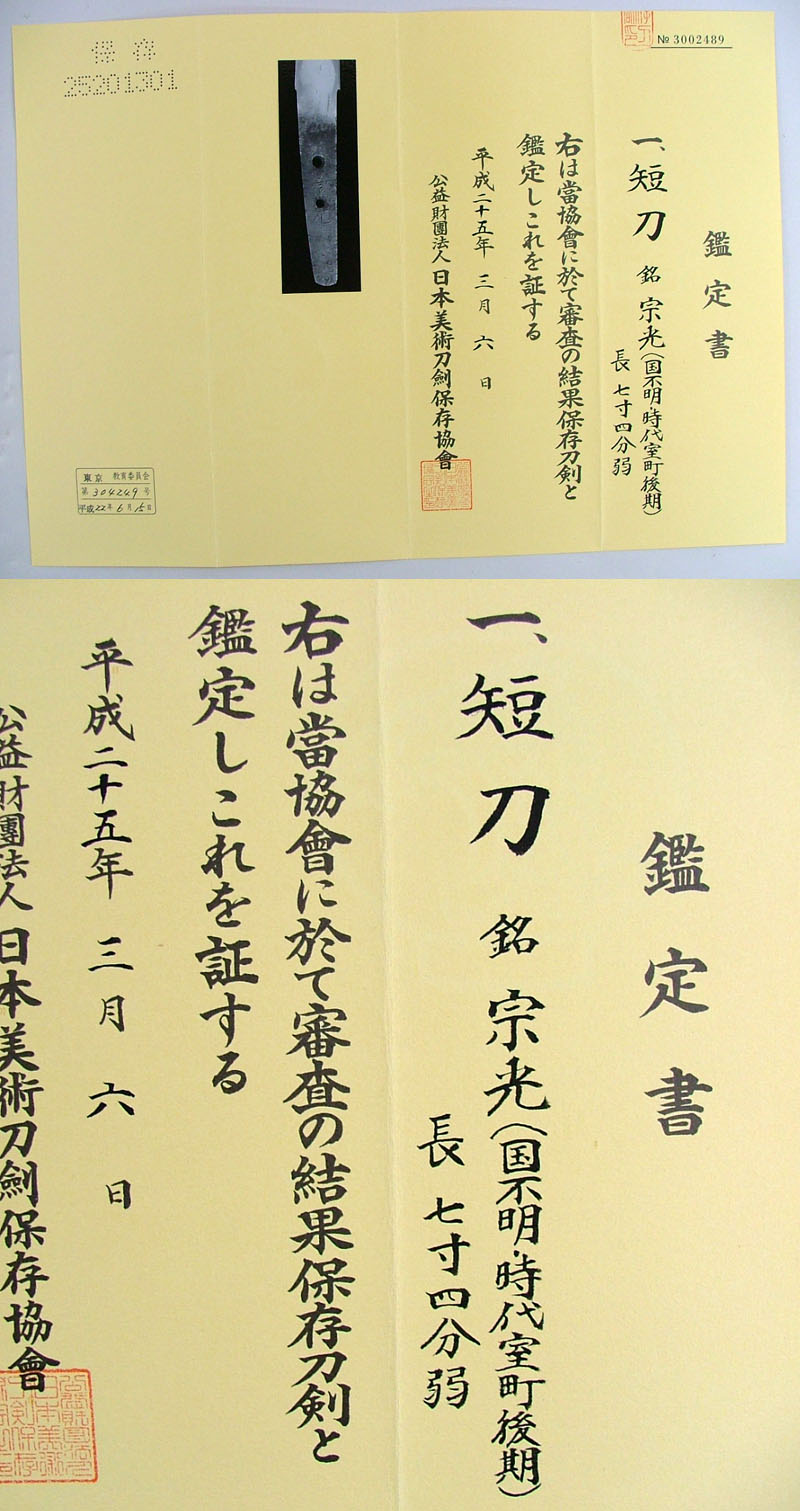 № 3002489
鑑定書
一、短刀 銘 宗光(国不明・時代室町後期)
長 七寸四分弱
右は當協會に於て審査の結果保存刀剣と
鑑定しこれを証する
平成二十五年 三月 六 日
公益財團法人 日本美術刀劍保存協會
保存
25201301
東京 教育委員会
第304249号
平成22年6月15日
鑑定書
一、短刀 銘 宗光(国不明・時代室町後期)
長 七寸四分弱
右は當協會に於て審査の結果保存刀剣と
鑑定しこれを証する
平成二十五年 三月 六 日
公益財團法人 日本美術刀劍保存協會